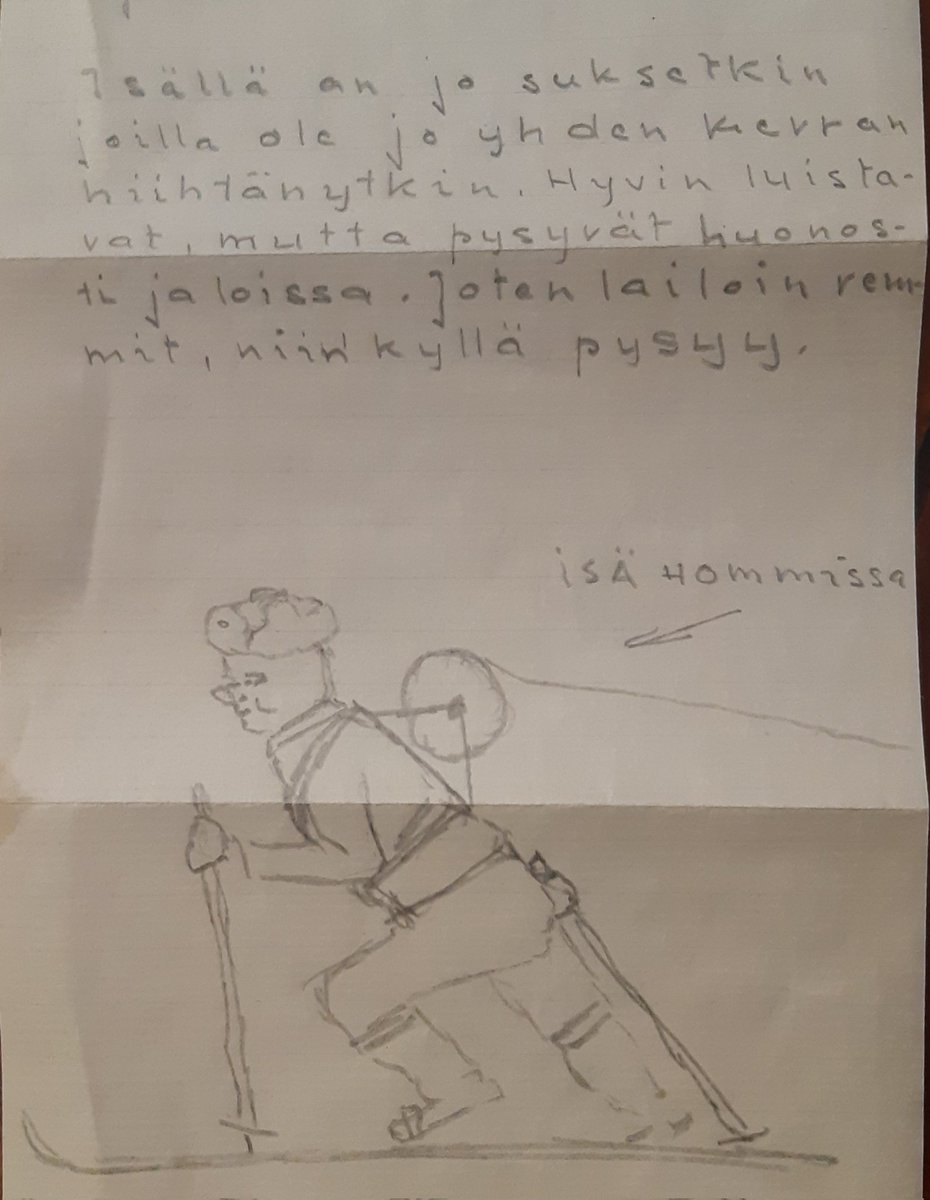 Isällä on jo suksetkin
joilla ole jo yhden kerran
hiihtänytkin. Hyvin luista-
vat, mutta pysyvät huonos-
ti jaloissa. Joten lailoin rem-
mit, niin kyllä pysyy.
ISÄ HOMMISSA